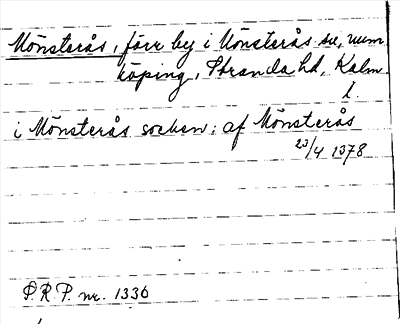 Mönsterås, förr by i Mönsterås sn, num
köping, Stranda hd, Kalm.
l
i Mönsterås socken; af Mönsterås
23/4 1378
S.R.P. nr. 1336